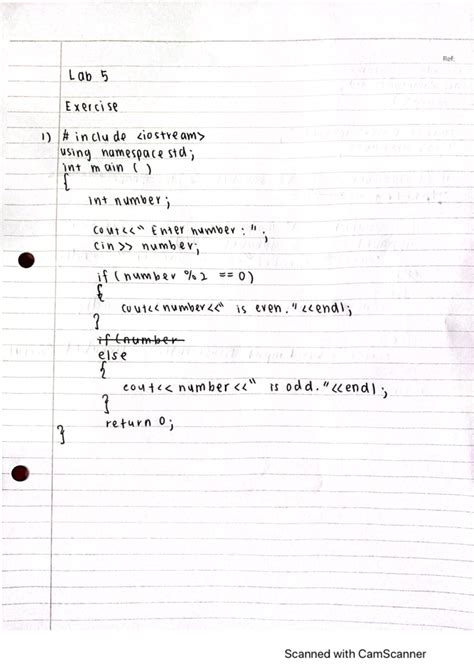 Ref:
Lab 5
Exercise
1) # include <iostream>
using namespace std;
int main ( )
{
int number;
cout<<" Enter number : ";
cin >> number;
if ( number % 2 == 0)
{
cout<< number<<" is even. "<<endl;
}
if (number
else
{
cout<< number <<" is odd. "<<endl;
}
return 0;
}
Scanned with CamScanner